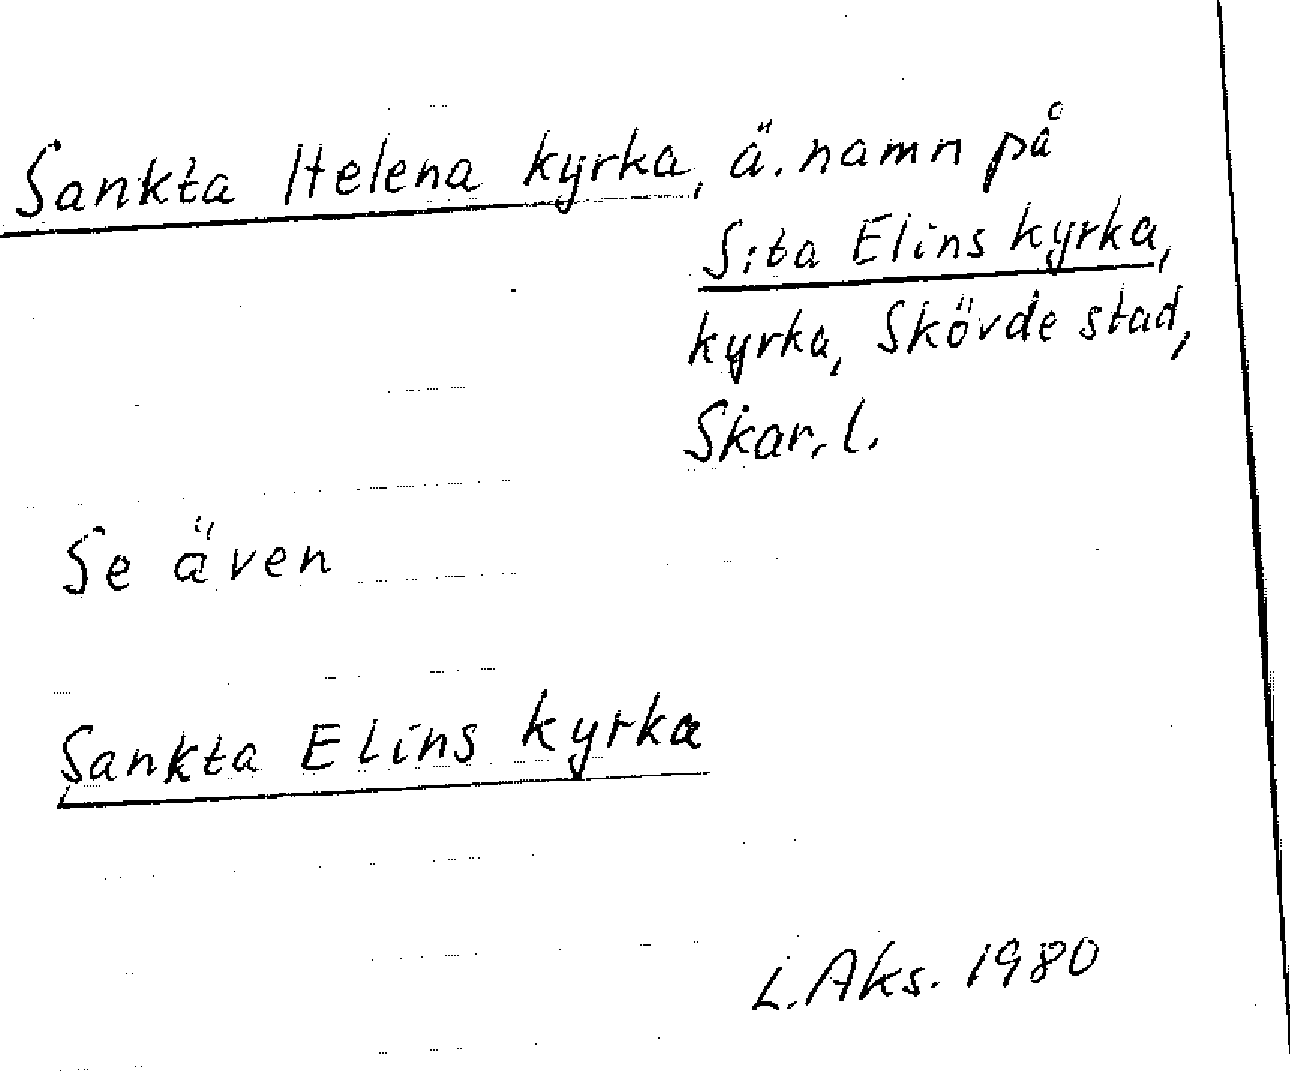 Sankta Helena kyrka, ä. namn på
S:ta Elins kyrka,
kyrka, Skövde stad,
Skar. l.
Se även
Sankta Elins kyrka
L. Aks. 1980